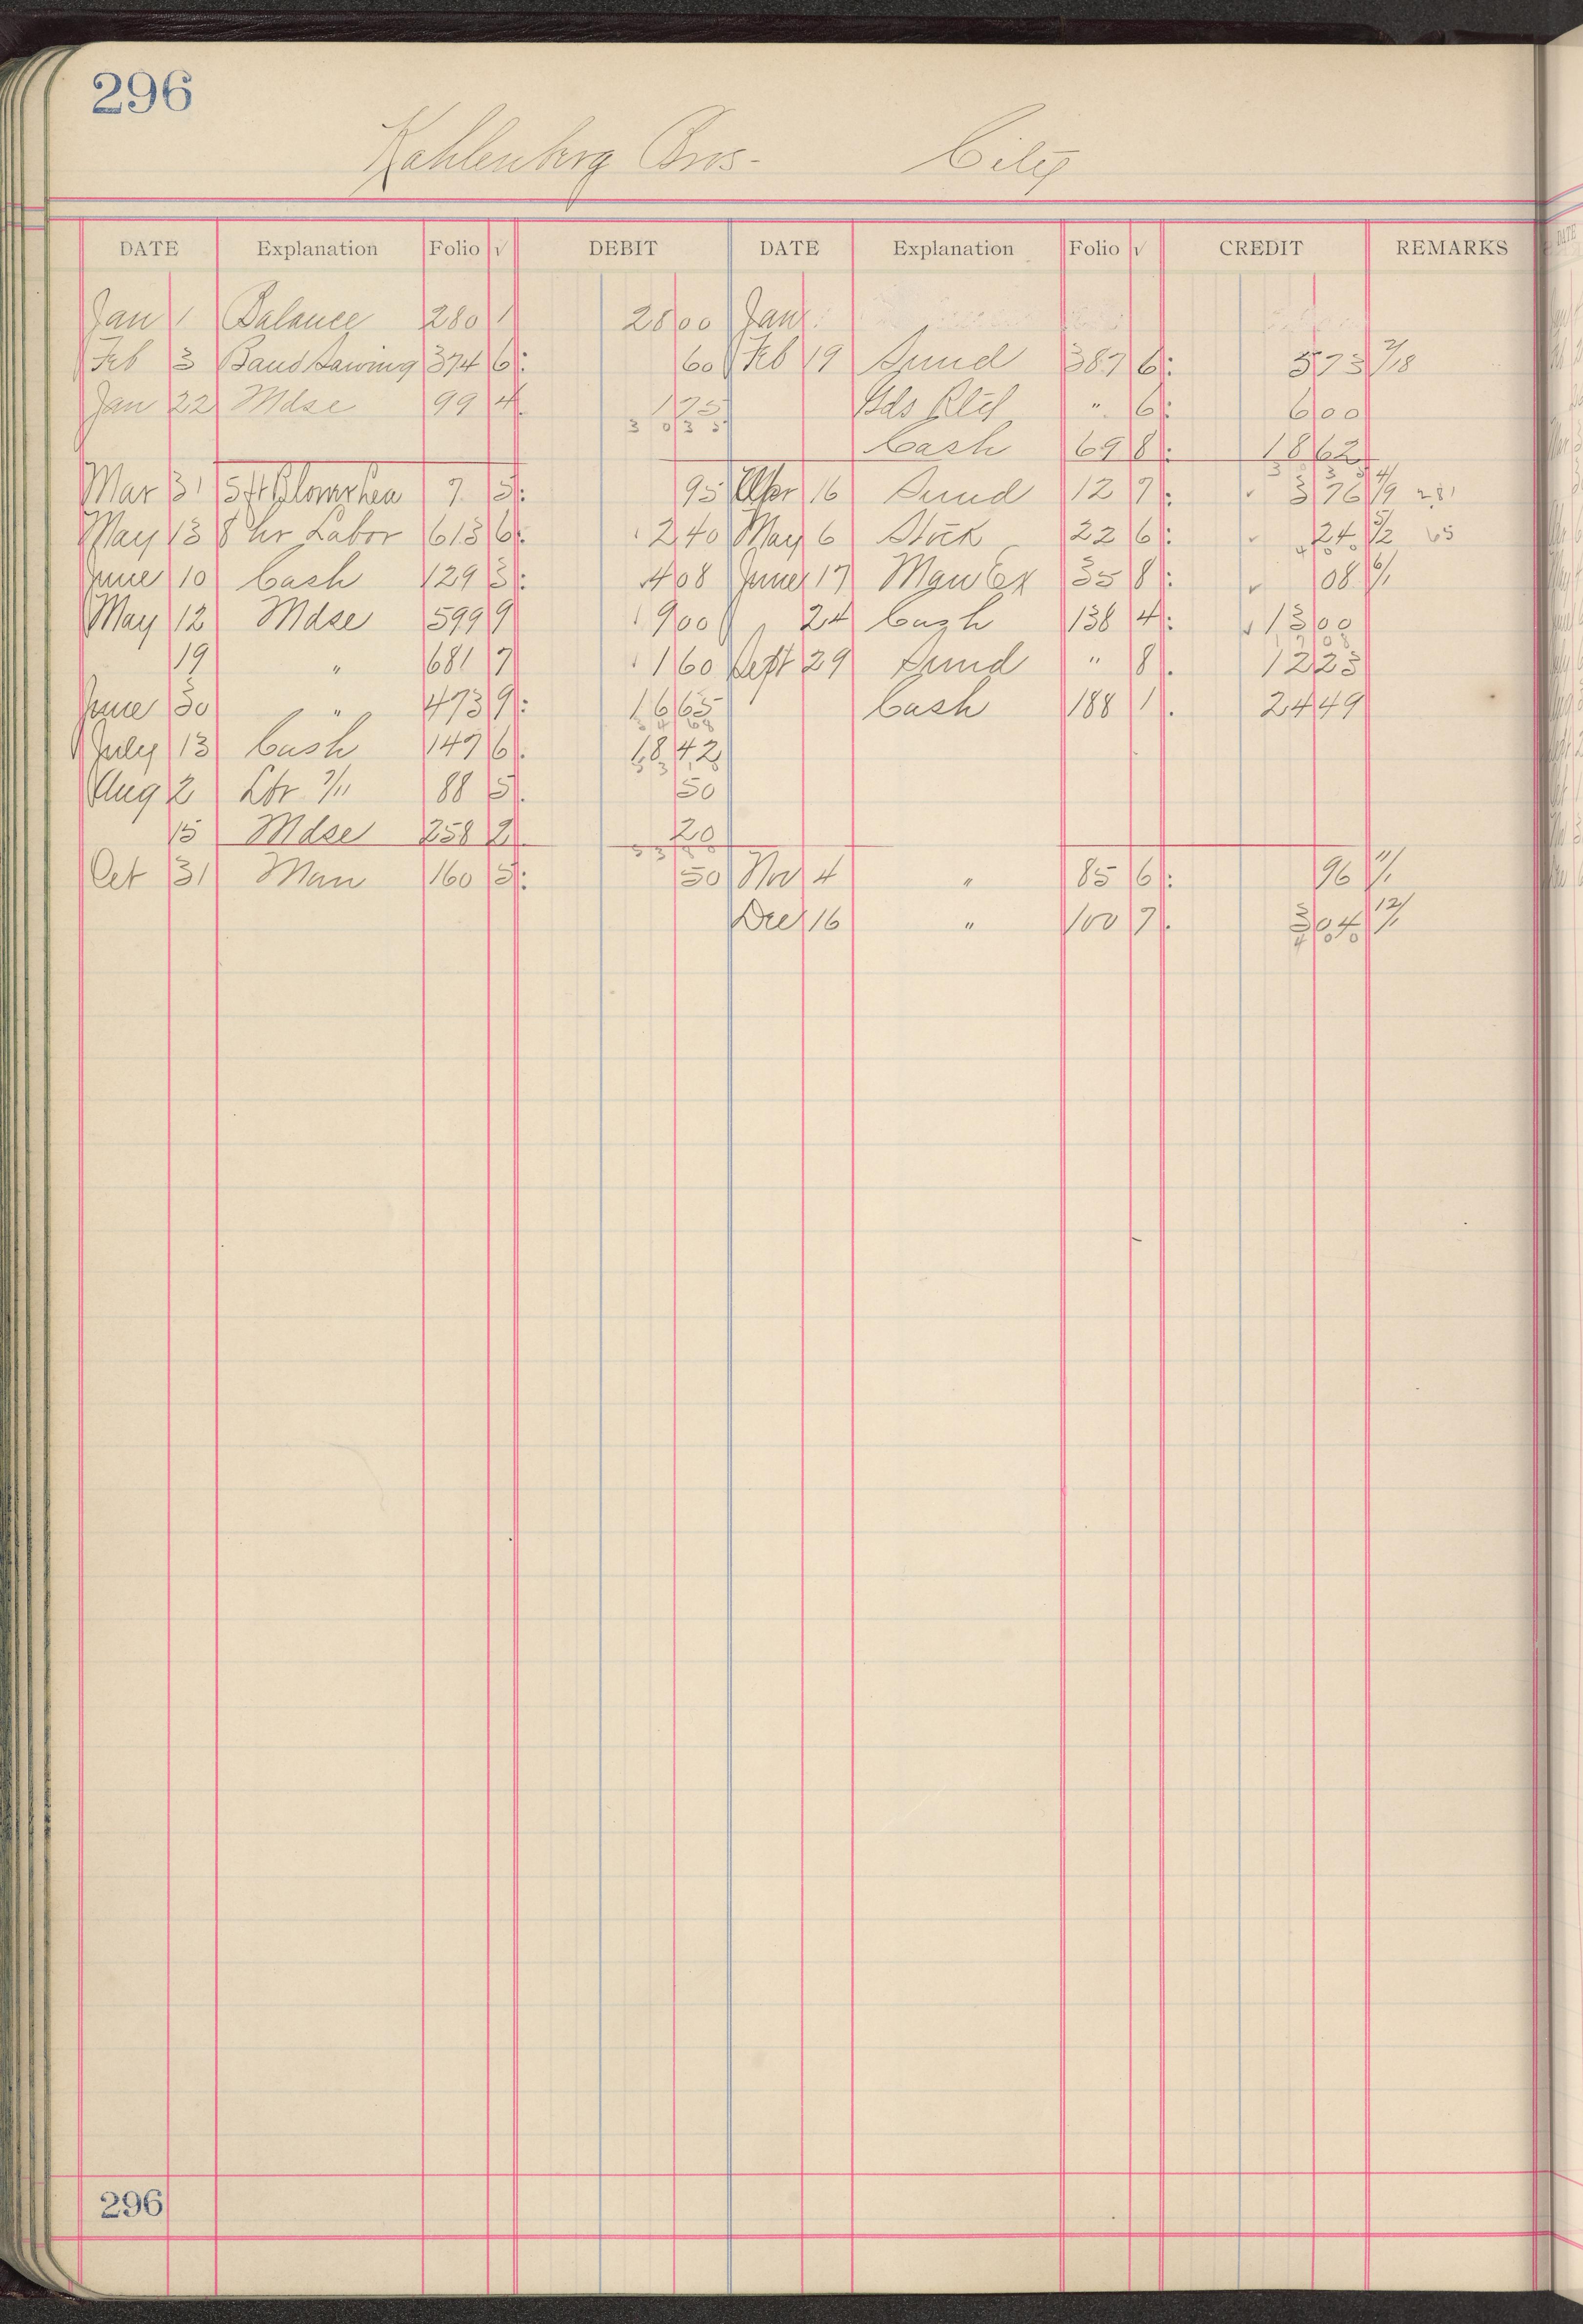 296
Kahlenberg Bros- City
DATE Explanation Folio √ DEBIT DATE Explanation Folio √ CREDIT REMARKS
Jan 1 Balance 280 1 2800 Jan
Feb 3 Band Sawing 374 6 60 Feb 19 Sund 387 6 573 2/18
Jan 22 Mdse 99 4 175 Gds " 6 600
3035 Cash 69 8 1862
3035
Mar 31 7 5 95 Apr 16 Sund 12 7 376 4/9
May 13 8 hr Labor 613 6 240 May 6 Stick 22 6 24 5/2 65
June 10 Cash 129 3 408 June 17 35 8 108 6/1
May 12 Mdse 599 9 900 24 Cash 138 4 1300
19 " 681 7 160 Sept 29 Sund " 8 1223
June 30 " 473 9 1665 Cash 188 1 2449
July 13 Cash 147 6 1842
Aug 2 Lbr 7/11 88 5 50
15 Mdse 258 2 20
Oct 31 Man 160 5 50 Nov 4 " 85 6 96 11/1
Dec 16 " 100 7 304 12/7
296